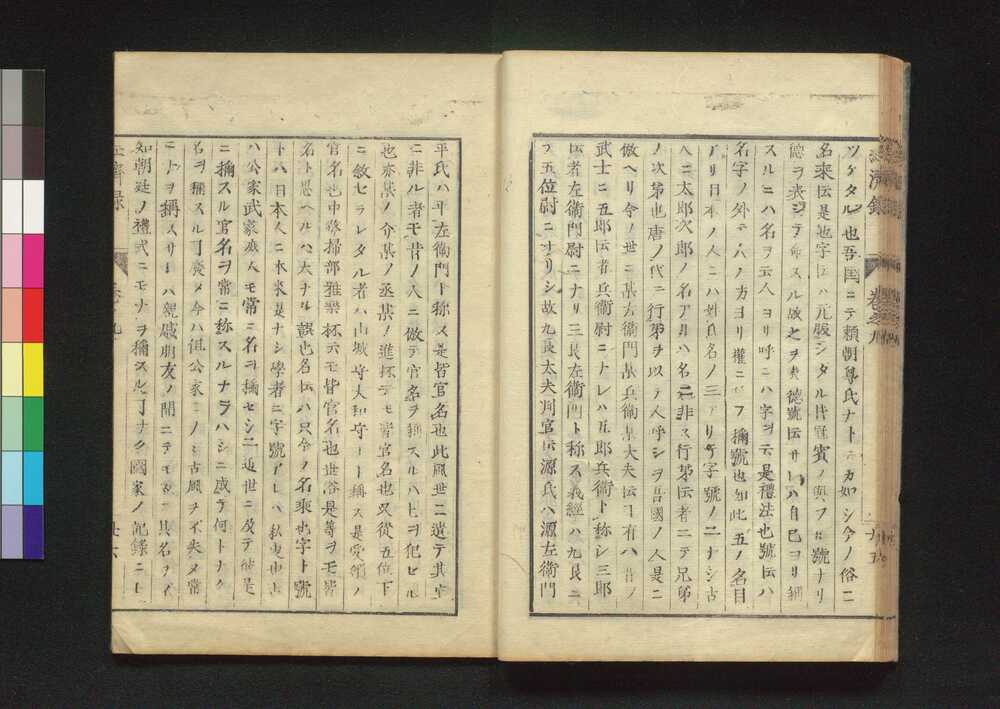 經濟録 巻之九
ツケタル也吾国ニテ頼朝尊氏ナトニカ如シ今ノ俗ニ
名乗伝是也字伝ハ元服シタル時賓ノ與フル號ナリ
德ヲ表シテ命スル故之ヲ表德號伝サレハ自己ヨリ稱
スルニハ名ヲ云人ヨリ呼ニハ字ヲ云是禮法也號伝ハ
名字ノ外ニ人ノ方ヨリ權ニ云フ稱號也如此五ノ名目
アリ日本ノ人ニハ姓氏名ノ三アリテ字號ノ二ナシ古
ヘニ太郎次郎ノ名アルハ名ニ非ス行第伝者ニテ兄弟
ノ次第也唐ノ代ニ行第ヲ以テ人呼シヲ吾國ノ人是ニ
倣ヘリ今ノ世ニ某右衛門某兵衛某大夫伝ヿ有ハ昔ノ
武士ニ五郎伝者兵衛尉ニナレハ五郎兵衛ト称シ三郎
伝者左衛門尉ニナリ三良左衛門ト称ス義經ハ九良ニ
テ五位尉ニナリシ故九良大夫判官伝源氏ハ源左衛門
平氏ハ平左衛門ト称ス是皆官名也此風世ニ遺テ其官
ニ非ル者モ昔ノ人ニ倣テ官名ヲ稱スルハ上ヲ犯セル
也亦某ノ介某ノ丞某ノ進抔云モ皆官名也又從五位下
ニ敘セラレタル者ハ山城守大和守ナト稱ス是受領ノ
官名也中務掃部雅樂抔云モ皆官名也世俗是等ヲモ皆
名ト思ヘルハ大ナル誤也名伝ハ只今ノ名乘也字ト號
トハ日本人ニ本來是ナシ學者ニ字號アレハ私事也上
ハ公家武家庶人モ常ニ名ヲ稱セシニ近世ニ及テ他是
ニ稱スル官名ヲ常ニ称スルナラハシニ成テ何トナク
名ヲ稱スルヿ廢メ今ハ但公家ニノミ古風ヲ不失メ常
ニトヲ稱スリ ハ親戚朋友ノ間ニテモ 其名ヲ
知朝廷ノ禮式ニモナヲ稱スルヿナク國家ノ記録ニモ
經濟録
廿六